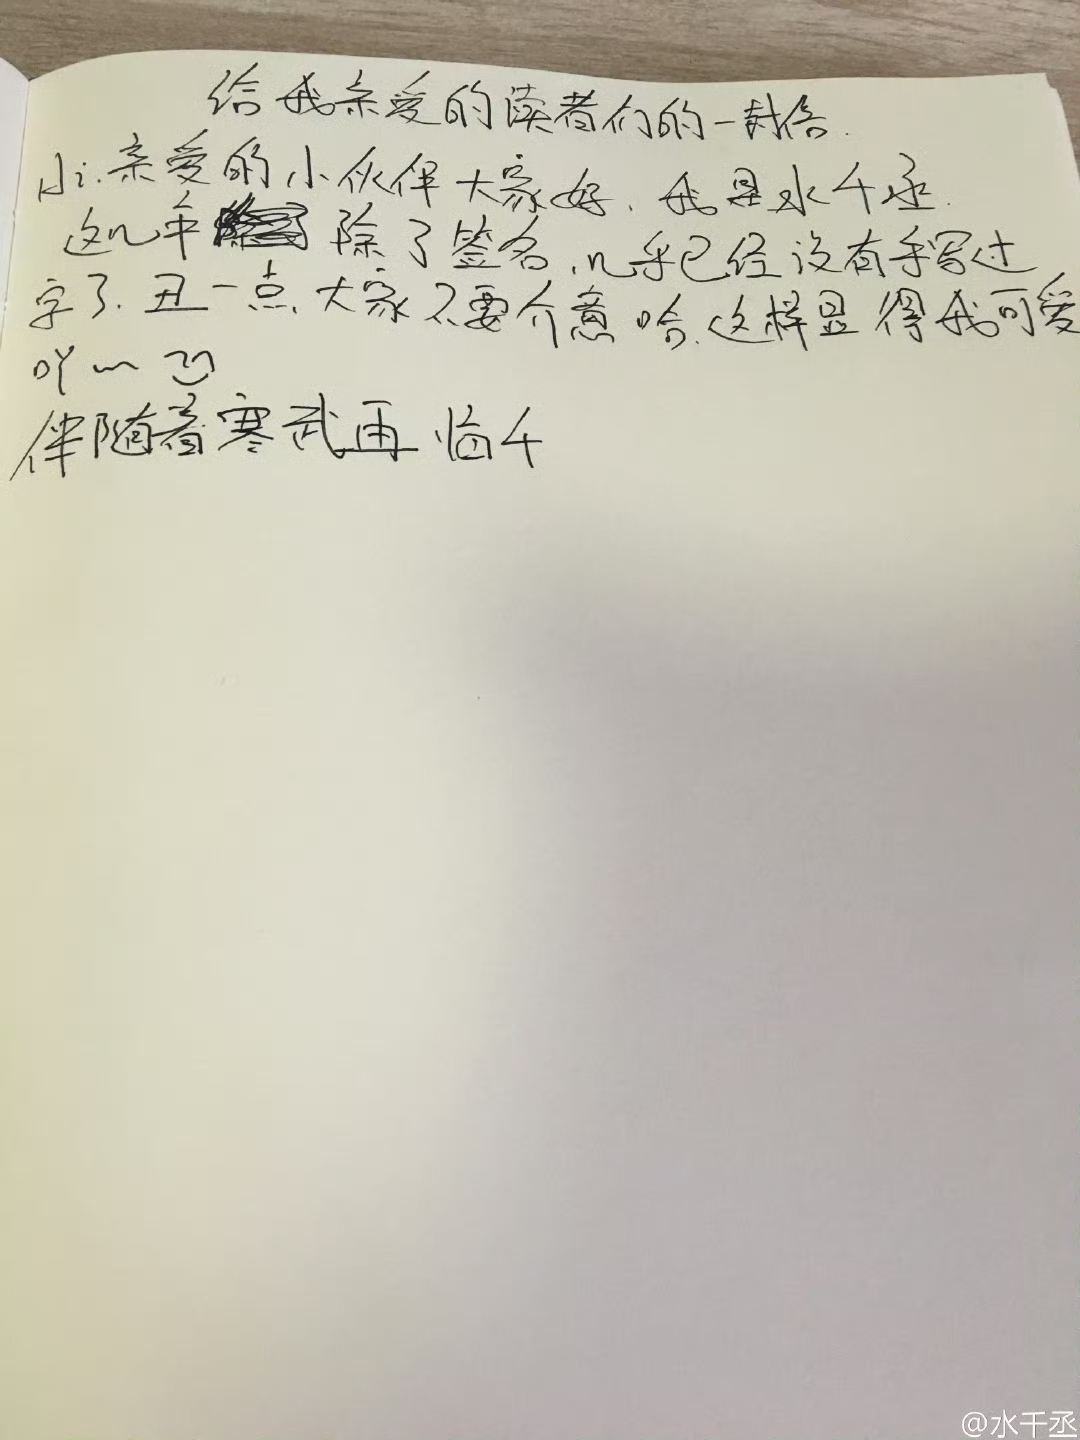 给我亲爱的读者们的一封信.
Hi.亲爱的小伙伴大家好.我是水千丞.
这几年 除了签名,几乎已经没有手写过
字了.丑一点,大家不要介意哈.这样显得我可爱
吖~
伴随着寒武再临
@水千丞